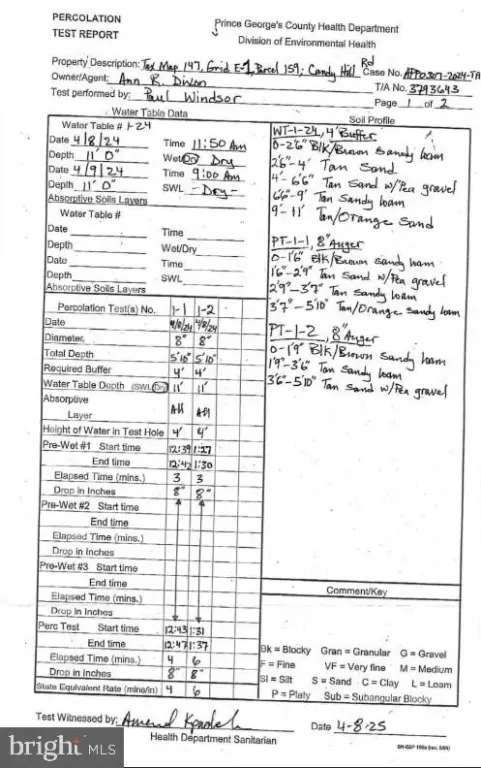 PERCOLATION
TEST REPORT
Prince George's County Health Department
Division of Environmental Health
Property Description: Tax Map 147, Grid E-1, Parcel 159; Candy Hill Rd Case No.
Owner/Agent: Ann R. Dixon T/A No. 3793643
Test performed by: Paul Windsor Page 1 of 2
Water Table Data
Water Table # 1-24
Date 4/8/24 Time 11:50 Am
Depth 11' 0" Wet/Dry Dry
Date 4/9/24 Time 9:00 Am
Depth 11' 0 SWL - Dry -
Absorptive Soils Layers
Water Table #
Date Time
Depth Wet/Dry
Date Time
Depth SWL
Absorptive Soils Layers
Percolation Test(s) No. 1-1 1-2
Date 4/8/24 4/8/24
Diameter 8" 8"
Total Depth 5'10" 5'10"
Required Buffer 4' 4'
Water Table Depth (SWL/Dry) 11' 11'
Absorptive
Layer All All
Height of Water in Test Hole 4' 4'
Pre-Wet #1 Start time 12:39 1:27
End time 12:42 1:30
Elapsed Time (mins.) 3 3
Drop in Inches 8" 8"
Pre-Wet #2 Start time
End time
Elapsed Time (mins.)
Drop in Inches
Pre-Wet #3 Start time
End time
Elapsed Time (mins.)
Drop in Inches
Perc Test Start time 12:43 1:31
End time 12:47 1:37
Elapsed Time (mins.) 4 6
Drop in Inches 8" 8"
State Equivalent Rate (mins/in) 4 6
Soil Profile
WT-1-24, 4' Buffer
0-2'6" Blk/Brown Sandy loam
2'6"-4' Tan Sand
4'-6'6" Tan Sand w/Pea gravel
6'6"-9' Tan Sandy loam
9'-11' Tan/Orange Sand
PT-1-1, 8" Auger
0-1'6" Blk/Brown Sandy loam
1'6"-2'9" Tan Sand w/Pea gravel
2'9"-3'7" Tan Sandy loam
3'7"-5'10" Tan/Orange Sandy loam
PT-1-2, 8" Auger
0-1'9" Blk/Brown Sandy loam
1'9"-3'6" Tan Sandy loam
3'6"-5'10" Tan Sand w/Pea gravel
Comment/Key
Bk = Blocky Gran = Granular G = Gravel
F = Fine VF = Very fine M = Medium
SI = Silt S = Sand C = Clay L = Loam
P = Platy Sub = Subangular Blocky
Test Witnessed by: Date 4-8-25
Health Department Sanitarian
bright MLS